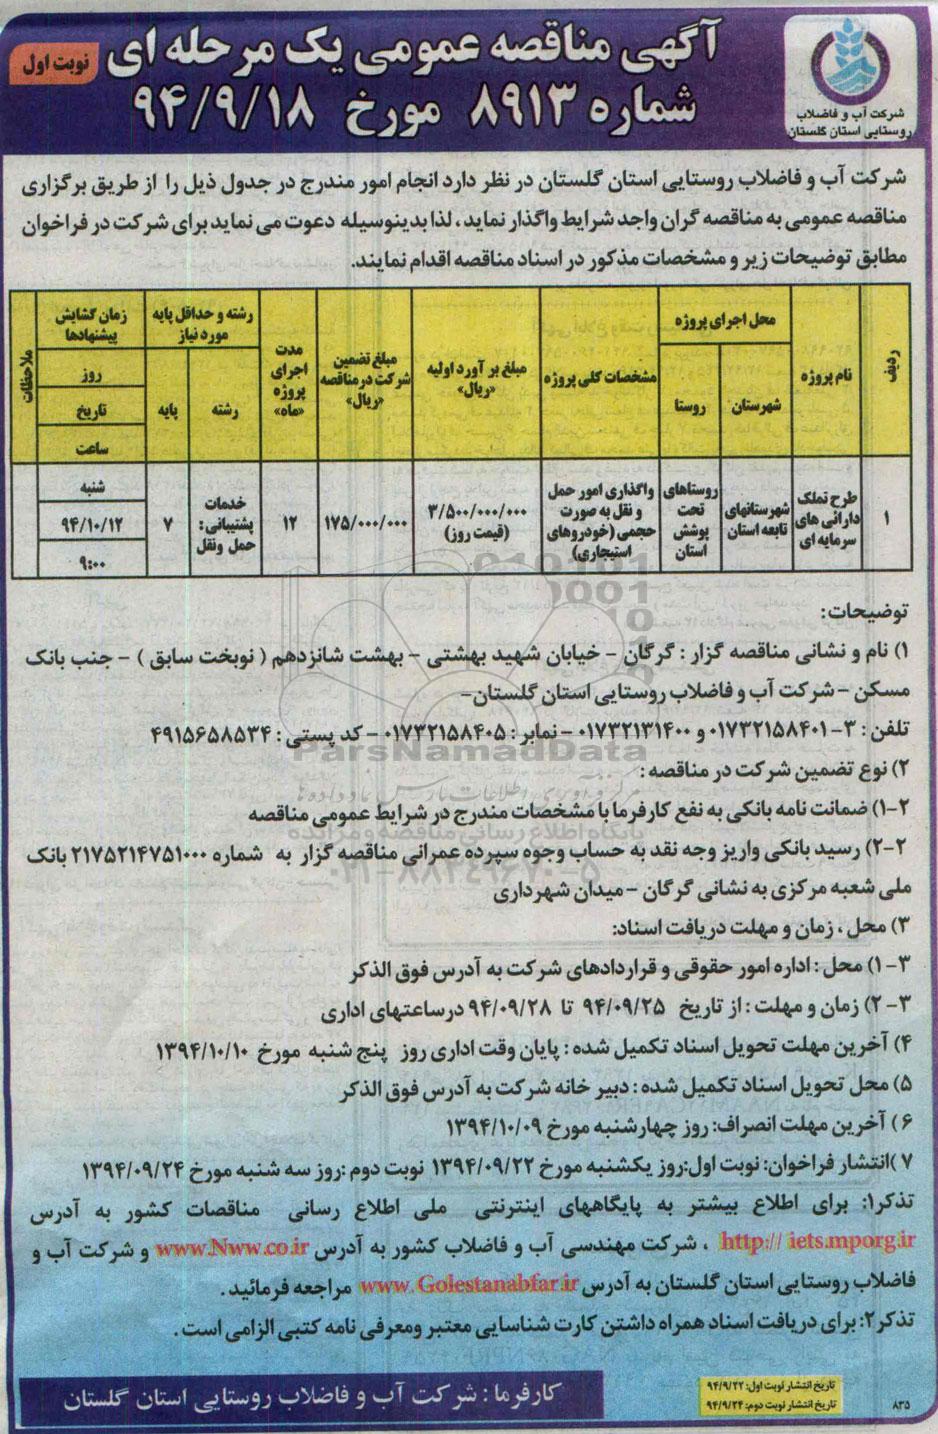 آگهی مناقصه عمومی یک مرحله ای
نوبت اول
شماره ۸۹۱۳ مورخ ۹۴/۹/۱۸
شرکت آب و فاضلاب
روستایی استان گلستان
شرکت آب و فاضلاب روستایی استان گلستان در نظر دارد انجام امور مندرج در جدول ذیل را از طریق برگزاری
مناقصه عمومی به مناقصه گران واجد شرایط واگذار نماید، لذا بدینوسیله دعوت می نماید برای شرکت در فراخوان
مطابق توضیحات زیر و مشخصات مذکور در اسناد مناقصه اقدام نمایند.
ردیف
نام پروژه
محل اجرای پروژه
شهرستان
روستا
مشخصات کلی پروژه
مبلغ بر آورد اولیه
«ریال»
مبلغ تضمین
شرکت در مناقصه
«ریال»
مدت
اجرای
پروژه
«ماه»
رشته و حداقل پایه
مورد نیاز
رشته
پایه
زمان گشایش
پیشنهادها
روز
تاریخ
ساعت
ملاحظات
۱
طرح تملک
دارائی های
سرمایه ای
شهرستانهای
تابعه استان
روستاهای
تحت
پوشش
استان
واگذاری امور حمل
و نقل به صورت
حجمی (خودروهای
استیجاری)
۳/۵۰۰/۰۰۰/۰۰۰
(قیمت روز)
۱۷۵/۰۰۰/۰۰۰
۱۲
خدمات
پشتیبانی:
حمل ونقل
۷
شنبه
۹۴/۱۰/۱۲
۹:۰۰
توضیحات:
۱) نام و نشانی مناقصه گزار : گرگان - خیابان شهید بهشتی - بهشت شانزدهم ( نوبخت سابق ) - جنب بانک
مسکن - شرکت آب و فاضلاب روستایی استان گلستان-
تلفن : ۳-۰۱۷۳۲۱۵۸۴۰۱ و ۰۱۷۳۲۱۳۱۴۰۰ - نمابر : ۰۱۷۳۲۱۵۸۴۰۵ - کد پستی : ۴۹۱۵۶۵۸۵۳۴
ParsNamadData
۲) نوع تضمین شرکت در مناقصه :
۲-۱) ضمانت نامه بانکی به نفع کارفرما با مشخصات مندرج در شرایط عمومی مناقصه
پایگاه اطلاع رسانی مناقصه و مزایده
۲-۲) رسید بانکی واریز وجه نقد به حساب وجوه سپرده عمرانی مناقصه گزار به شماره ۲۱۷۵۲۱۴۷۵۱۰۰۰ بانک
۰۲۱-۸۸۳۴۹۶۷۰-۵
ملی شعبه مرکزی به نشانی گرگان - میدان شهرداری
۳) محل ، زمان و مهلت دریافت اسناد:
۳-۱) محل : اداره امور حقوقی و قراردادهای شرکت به آدرس فوق الذکر
۳-۲) زمان و مهلت : از تاریخ ۹۴/۰۹/۲۵ تا ۹۴/۰۹/۲۸ درساعتهای اداری
۴) آخرین مهلت تحویل اسناد تکمیل شده : پایان وقت اداری روز پنج شنبه مورخ ۱۳۹۴/۱۰/۱۰
۵) محل تحویل اسناد تکمیل شده : دبیر خانه شرکت به آدرس فوق الذکر
۶) آخرین مهلت انصراف: روز چهارشنبه مورخ ۱۳۹۴/۱۰/۰۹
۷)انتشار فراخوان: نوبت اول:روز یکشنبه مورخ ۱۳۹۴/۰۹/۲۲ نوبت دوم :روز سه شنبه مورخ ۱۳۹۴/۰۹/۲۴
تذکر۱: برای اطلاع بیشتر به پایگاههای اینترنتی ملی اطلاع رسانی مناقصات کشور به آدرس
http:// iets.mporg.ir ، شرکت مهندسی آب و فاضلاب کشور به آدرس www.Nww.co.ir و شرکت آب و
فاضلاب روستایی استان گلستان به آدرس www.Golestanabfar.ir مراجعه فرمائید.
تذکر۲: برای دریافت اسناد همراه داشتن کارت شناسایی معتبر ومعرفی نامه کتبی الزامی است .
کارفرما : شرکت آب و فاضلاب روستایی استان گلستان
تاریخ انتشار نوبت اول: ۹۴/۹/۲۲
تاریخ انتشار نوبت دوم: ۹۴/۹/۲۴
۸۳۵